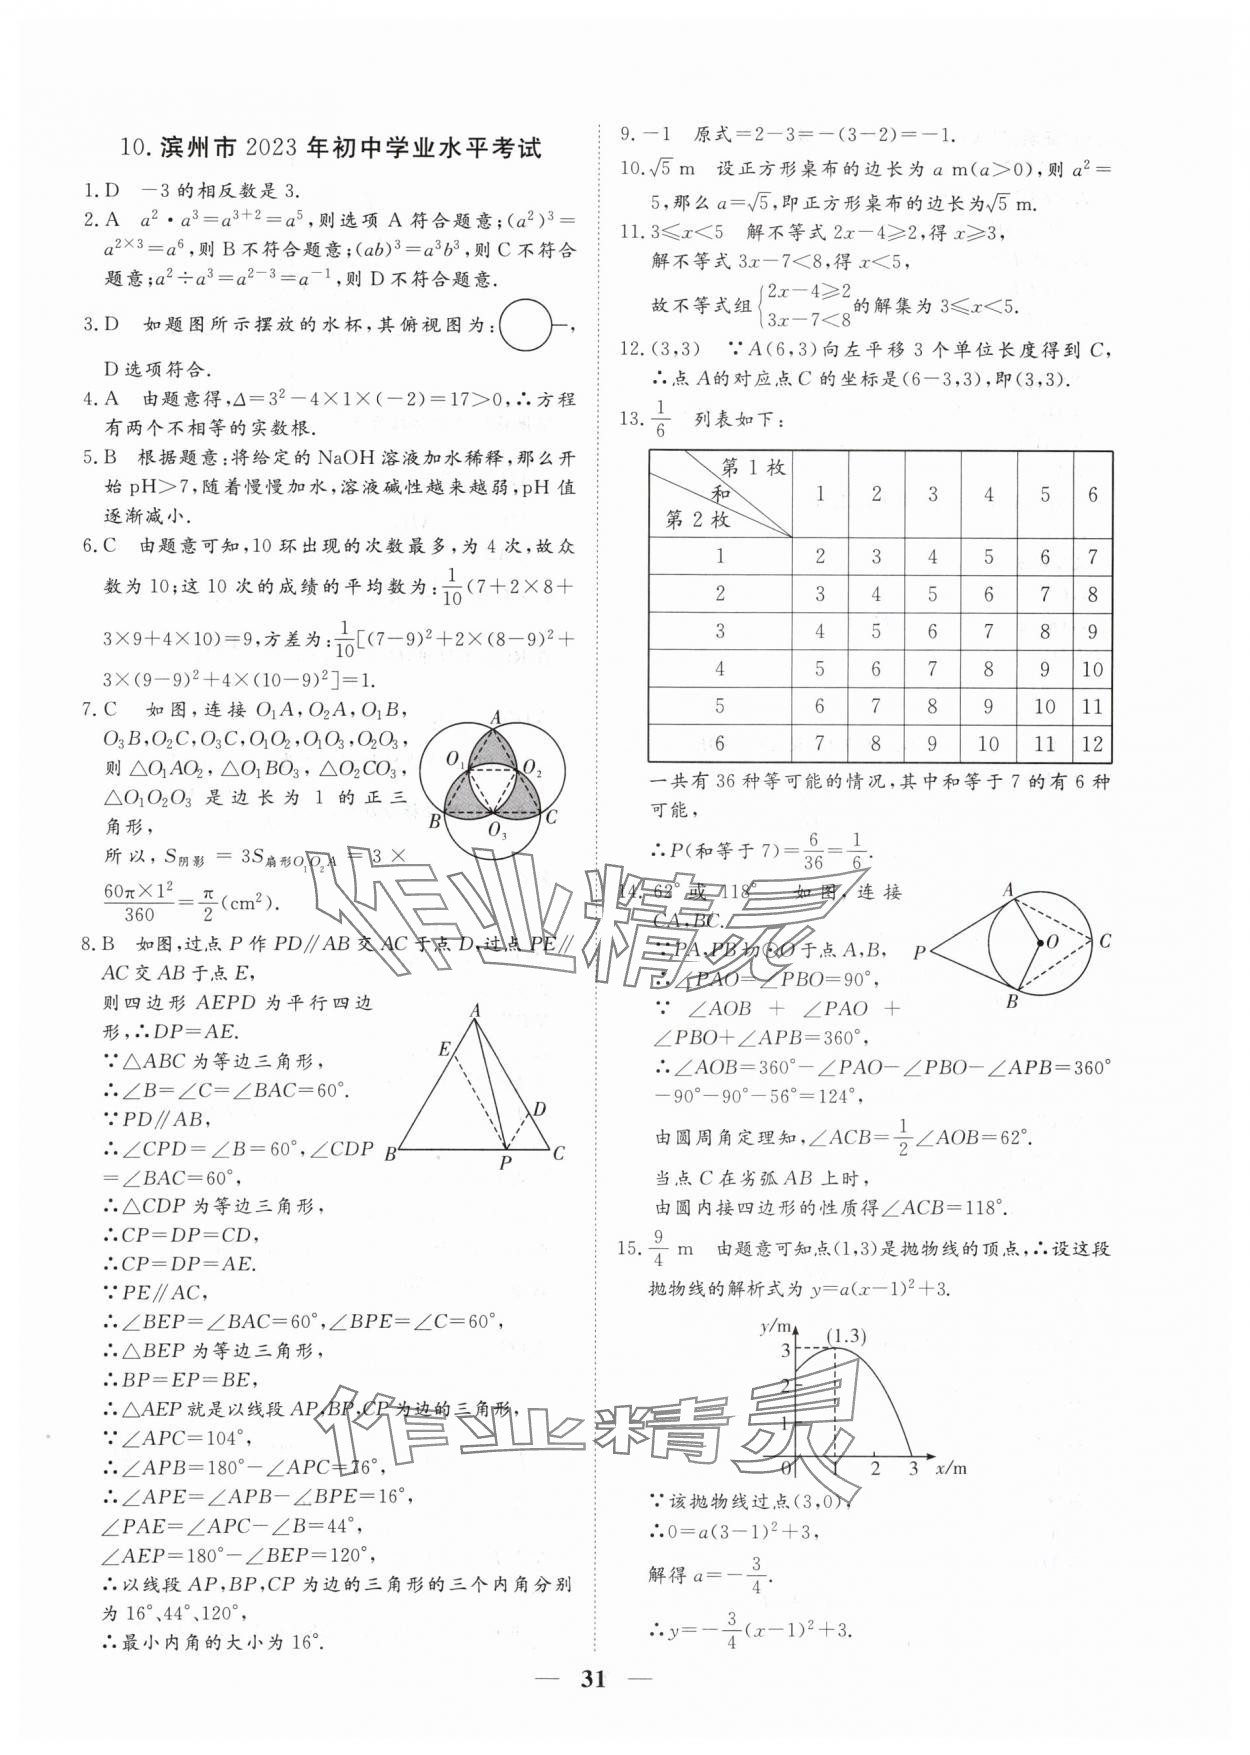 10. 滨州市 2023 年初中学业水平考试
1. D　-3 的相反数是 3.
2. A　a²·a³=a³⁺²=a⁵,则选项 A 符合题意;(a²)³=
a²ˣ³=a⁶,则 B 不符合题意;(ab)³=a³b³,则 C 不符合
题意;a²÷a³=a²⁻³=a⁻¹,则 D 不符合题意.
3. D　如题图所示摆放的水杯,其俯视图为:　,
D 选项符合.
4. A　由题意得,Δ=3²-4×1×(-2)=17>0,∴方程
有两个不相等的实数根.
5. B　根据题意:将给定的 NaOH 溶液加水稀释,那么开
始 pH>7,随着慢慢加水,溶液碱性越来越弱,pH 值
逐渐减小.
6. C　由题意可知,10 环出现的次数最多,为 4 次,故众
数为 10;这 10 次的成绩的平均数为:1/10(7+2×8+
3×9+4×10)=9,方差为:1/10[(7-9)²+2×(8-9)²+
3×(9-9)²+4×(10-9)²]=1.
7. C　如图,连接 O₁A,O₂A,O₁B,
O₃B,O₂C,O₃C,O₁O₂,O₁O₃,O₂O₃,
则 △O₁AO₂,△O₁BO₃,△O₂CO₃,
△O₁O₂O₃ 是边长为 1 的正三
角形,
所以,S阴影=3S扇形O₁O₂A=3×
60π×1²/360=π/2(cm²).
A
O₁
O₂
B
C
O₃
8. B　如图,过点 P 作 PD∥AB 交 AC 于点 D,过点 PE∥
AC 交 AB 于点 E,
则四边形 AEPD 为平行四边
形,∴DP=AE.
∵△ABC 为等边三角形,
∴∠B=∠C=∠BAC=60°.
∵PD∥AB,
∴∠CPD=∠B=60°,∠CDP
=∠BAC=60°,
∴△CDP 为等边三角形,
∴CP=DP=CD,
∴CP=DP=AE.
∵PE∥AC,
∴∠BEP=∠BAC=60°,∠BPE=∠C=60°,
∴△BEP 为等边三角形,
∴BP=EP=BE,
∴△AEP 就是以线段 AP,BP,CP 为边的三角形,
∵∠APC=104°,
∴∠APB=180°-∠APC=76°,
∴∠APE=∠APB-∠BPE=16°,
∠PAE=∠APC-∠B=44°,
∠AEP=180°-∠BEP=120°,
∴以线段 AP,BP,CP 为边的三角形的三个内角分别
为 16°、44°、120°,
∴最小内角的大小为 16°.
A
E
D
B
P
C
9. -1　原式=2-3=-(3-2)=-1.
10. √5 m　设正方形桌布的边长为 a m(a>0),则 a²=
5,那么 a=√5,即正方形桌布的边长为√5 m.
11. 3≤x<5　解不等式 2x-4≥2,得 x≥3,
解不等式 3x-7<8,得 x<5,
故不等式组{2x-4≥2
3x-7<8 的解集为 3≤x<5.
12. (3,3)　∵A(6,3)向左平移 3 个单位长度得到 C,
∴点 A的对应点 C 的坐标是(6-3,3),即(3,3).
13. 1/6　列表如下:
第 1 枚
和
第 2 枚
1 2 3 4 5 6
1 2 3 4 5 6 7
2 3 4 5 6 7 8
3 4 5 6 7 8 9
4 5 6 7 8 9 10
5 6 7 8 9 10 11
6 7 8 9 10 11 12
一共有 36 种等可能的情况,其中和等于 7 的有 6 种
可能,
∴P(和等于 7)=6/36=1/6.
14. 62°或 118°　如图,连接
CA,BC.
∵PA,PB切⊙O于点 A,B,
∴∠PAO=∠PBO=90°,
∵ ∠AOB + ∠PAO +
∠PBO+∠APB=360°,
∴∠AOB=360°-∠PAO-∠PBO-∠APB=360°
-90°-90°-56°=124°,
由圆周角定理知,∠ACB=1/2∠AOB=62°.
当点 C 在劣弧 AB 上时,
由圆内接四边形的性质得∠ACB=118°.
A
P
O
C
B
15. 9/4 m　由题意可知点(1,3)是抛物线的顶点,∴设这段
抛物线的解析式为 y=a(x-1)²+3.
y/m
(1.3)
3
2
1
0 1 2 3 x/m
∵该抛物线过点(3,0),
∴0=a(3-1)²+3,
解得 a=-3/4.
∴y=-3/4(x-1)²+3.
作业精灵
作业精灵
— 31 —